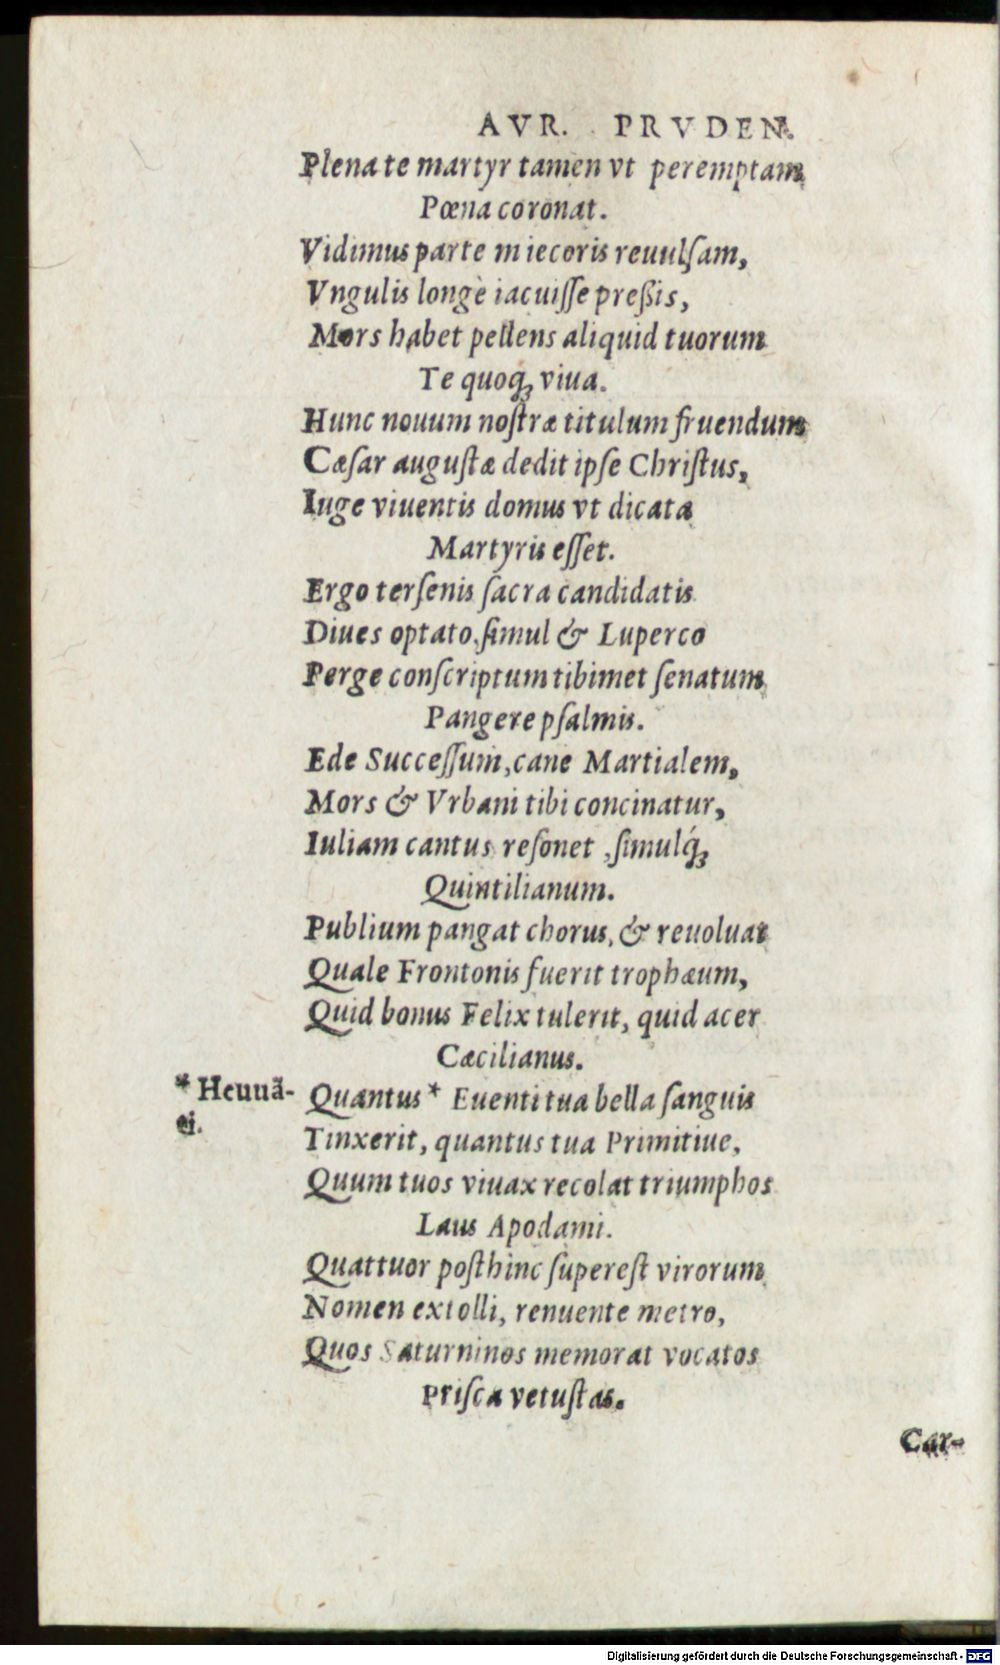 AVR. PRVDEN.
Plena te martyr tamen vt peremptam
Pœna coronat.
Vidimus partem iecoris reuulſam,
Vngulis longè iacuiſſe preßis,
Mors habet pellens aliquid tuorum
Te quoq; viua.
Hunc nouum noſtræ titulum fruendum
Cæſar auguſtæ dedit ipſe Chriſtus,
Iuge viuentis domus vt dicata
Martyris eſſet.
Ergo ter ſenis ſacra candidatis
Diues optato, ſimul & Luperco
Perge conſcriptum tibimet ſenatum
Pangere pſalmis.
Ede Succeſſum, cane Martialem,
Mors & Vrbani tibi concinatur,
Iuliam cantus reſonet, ſimulq́;
Quintilianum.
Publium pangat chorus, & reuoluat
Quale Frontonis fuerit trophæum,
Quid bonus Felix tulerit, quid acer
Cæcilianus.
* Heuuã-
ei.
Quantus * Euenti tua bella ſanguis
Tinxerit, quantus tua Primitiue,
Quum tuos viuax recolat triumphos
Laus Apodami.
Quattuor poſthinc ſupereſt virorum
Nomen extolli, renuente metro,
Quos Saturninos memorat vocatos
Priſca vetuſtas.
Car-
Digitalisierung gefördert durch die Deutsche Forschungsgemeinschaft - DFG